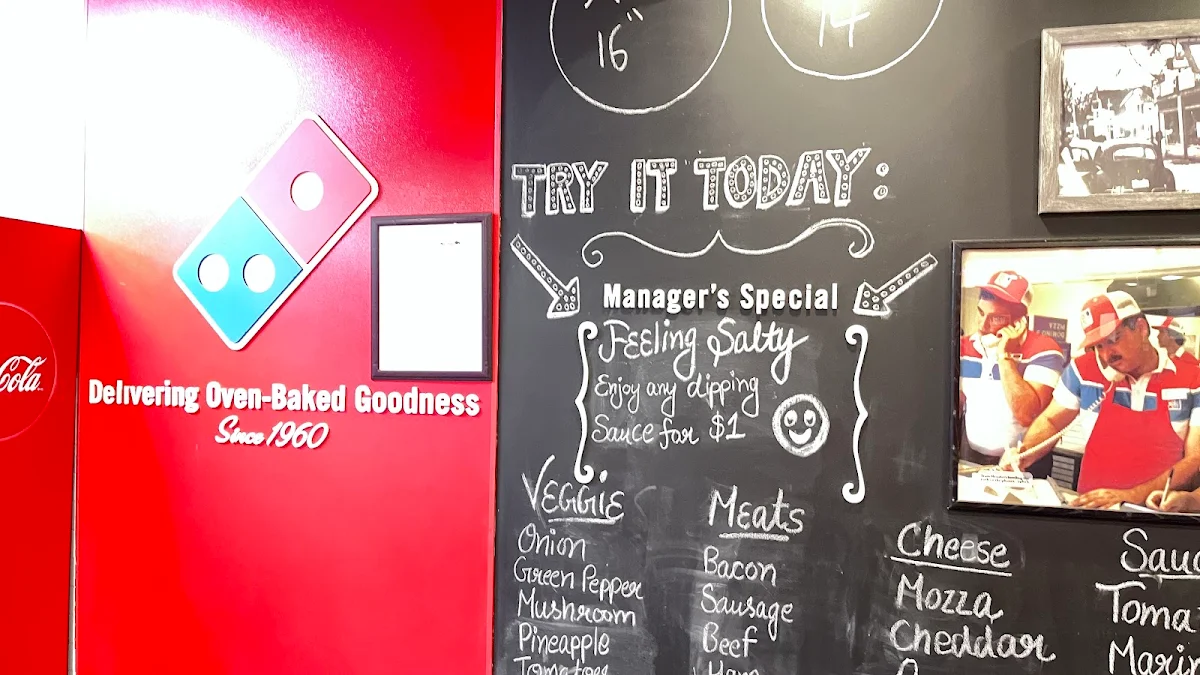 Cola
Delivering Oven-Baked Goodness
Since 1960
16"
14
TRY IT TODAY:
Manager's Special
Feeling Salty
Enjoy any dipping
Sauce for $1
Veggie
Onion
Green Pepper
Mushroom
Pineapple
Tomatoes
Meats
Bacon
Sausage
Beef
Ham
Cheese
Mozza
Cheddar
Sauc
Toma
Marin